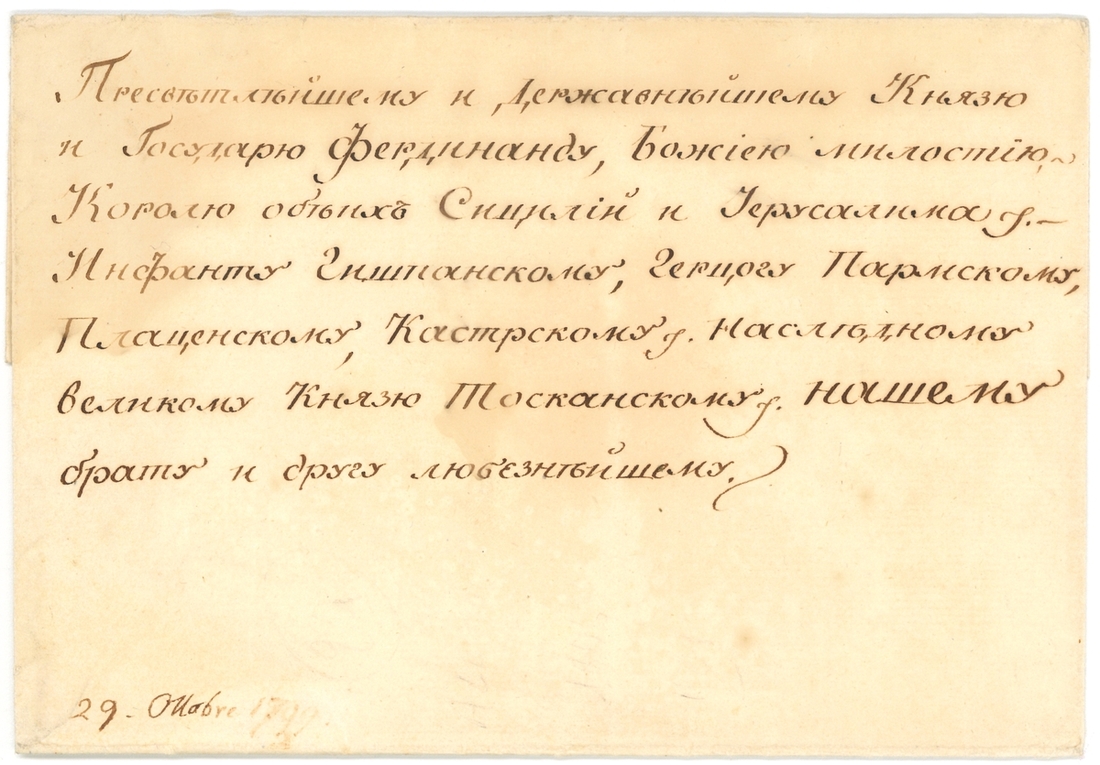 Пресвѣтлѣйшему и Державнѣйшему Князю
и Государю Фердинанду, Божіею милостію,
Королю обѣихъ Сицилій и Іерусалима
Инфанту Гишпанскому, Герцогу Пармскому,
Плаценскому, Кастрскому наслѣдному
великому Князю Тосканскому нашему
брату и другу любезнѣйшему.
29. Ottobre 1799.